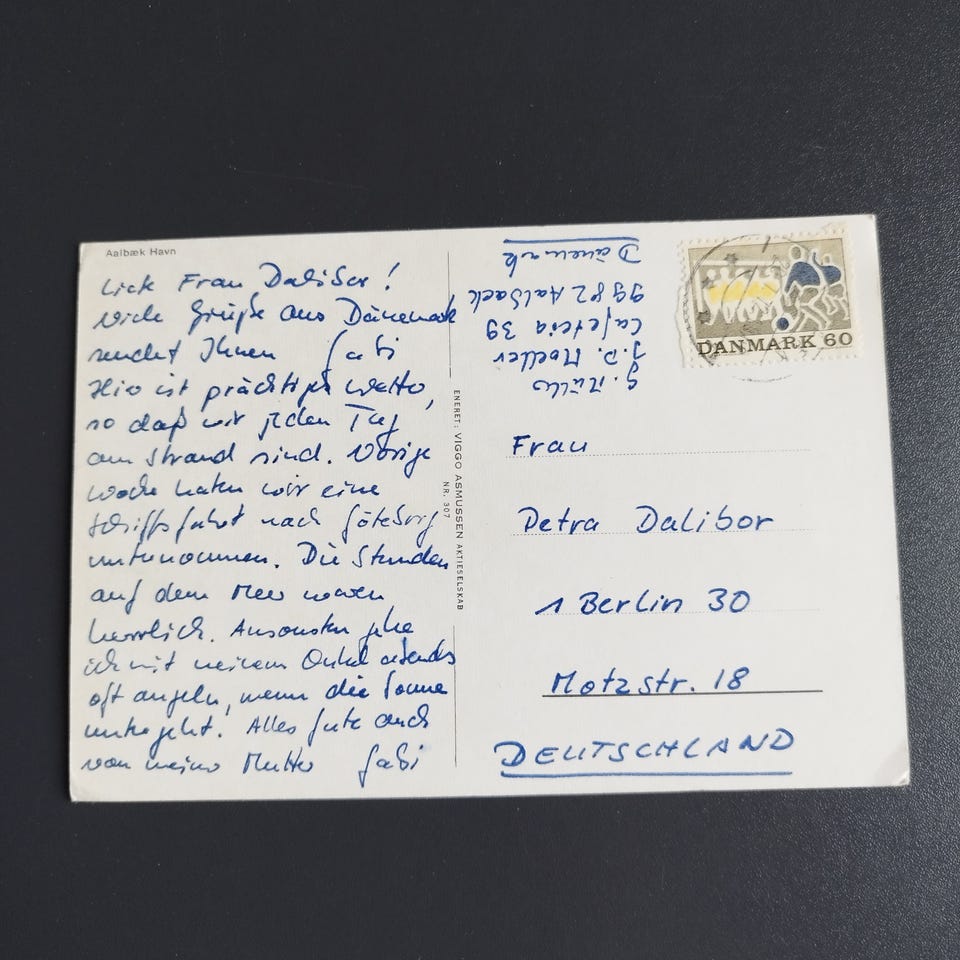 Aalbæk Havn
Liebe Frau Dalibor!
Viele Grüße aus Dänemark
sendet Ihnen Gabi
Hier ist prächtiges Wetter,
so daß wir jeden Tag
am Strand sind. Vorige
Woche haben wir eine
Schiffsfahrt nach Göteborg
unternommen. Die Stunden
auf dem Meer waren
herrlich. Ansonsten gehe
ich mit meinem Onkel abends
oft angeln, wenn die Sonne
untergeht. Alles Gute auch
von meiner Mutter Gabi
ENERET: VIGGO ASMUSSEN AKTIESELSKAB
NR. 307
G. Müller
J. D. Moeller
Cafeteria 39
9982 Aalbaek
Dänemark
DANMARK 60
Frau
Petra Dalibor
1 Berlin 30
Motzstr. 18
DEUTSCHLAND